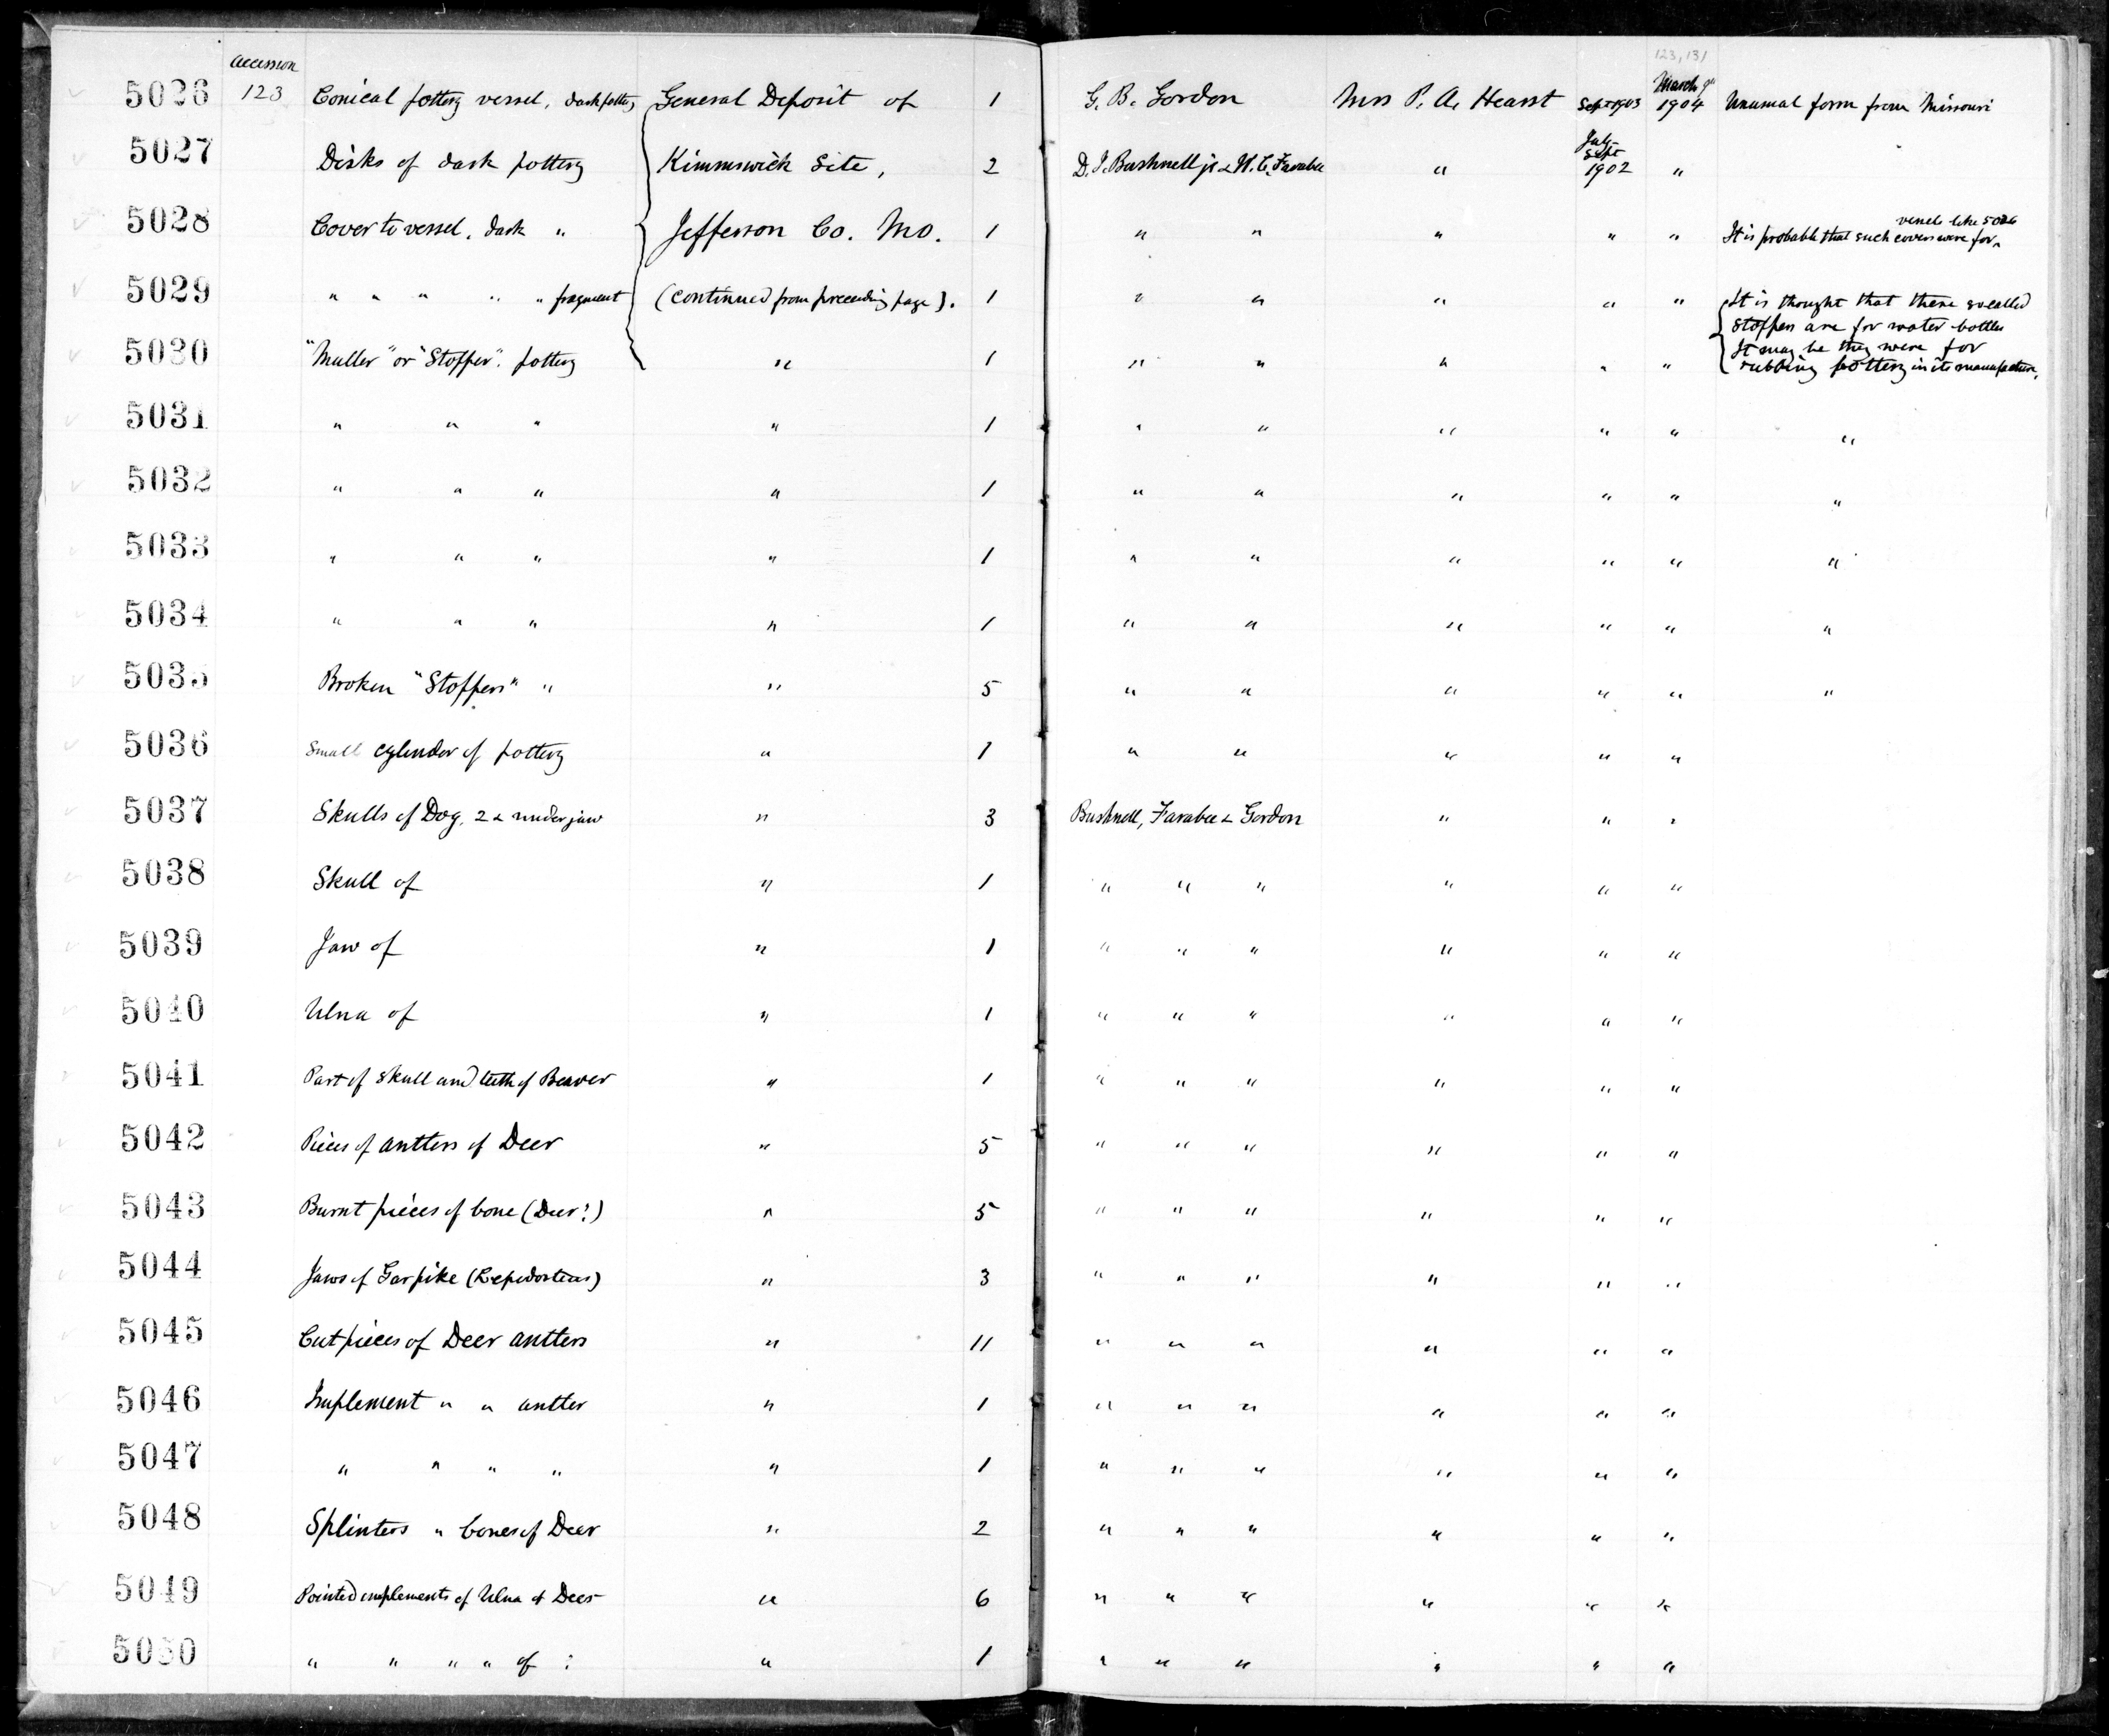 accession
123, 131
5026 123 Conical pottery vessel, dark pottery General Deposit of 1 G. B. Gordon Mrs P. A. Hearst Sept 1903 March 9" 1904 Unusual form from Missouri
5027 Disks of dark pottery Kimmswick Site, 2 D. I. Bushnell jr & W. C. Farabee " July Sept 1902 "
5028 Cover to vessel, dark " Jefferson Co. Mo. 1 " " " " " It is probable that such covers were for vessels like 5026
5029 " " " " " fragment (continued from preceeding page). 1 " " " " " It is thought that these so called
stoppers are for water-bottles
5030 "Muller" or "Stopper". pottery " 1 " " " " " It may be they were for
rubbing pottery in its manufacture,
5031 " " " " 1 " " " " " "
5032 " " " " 1 " " " " " "
5033 " " " " 1 " " " " " "
5034 " " " " 1 " " " " " "
5035 Broken "Stoppers" " " 5 " " " " " "
5036 Small cylinder of pottery " 1 " " " " "
5037 Skulls of Dog, 2 & under jaw " 3 Bushnell, Farabee & Gordon " " "
5038 Skull of " 1 " " " " " "
5039 Jaw of " 1 " " " " " "
5040 Ulna of " 1 " " " " " "
5041 Part of skull and teeth of Beaver " 1 " " " " " "
5042 Pieces of antlers of Deer " 5 " " " " " "
5043 Burnt pieces of bone (Deer?) " 5 " " " " " "
5044 Jaws of Garpike (Lepidosteus) " 3 " " " " " "
5045 Cut pieces of Deer antlers " 11 " " " " " "
5046 Implement " " antler " 1 " " " " " "
5047 " " " " " 1 " " " " " "
5048 Splinters " bones of Deer " 2 " " " " " "
5049 Pointed implements of Ulna of Deer " 6 " " " " " "
5050 " " " " of ? " 1 " " " " " "